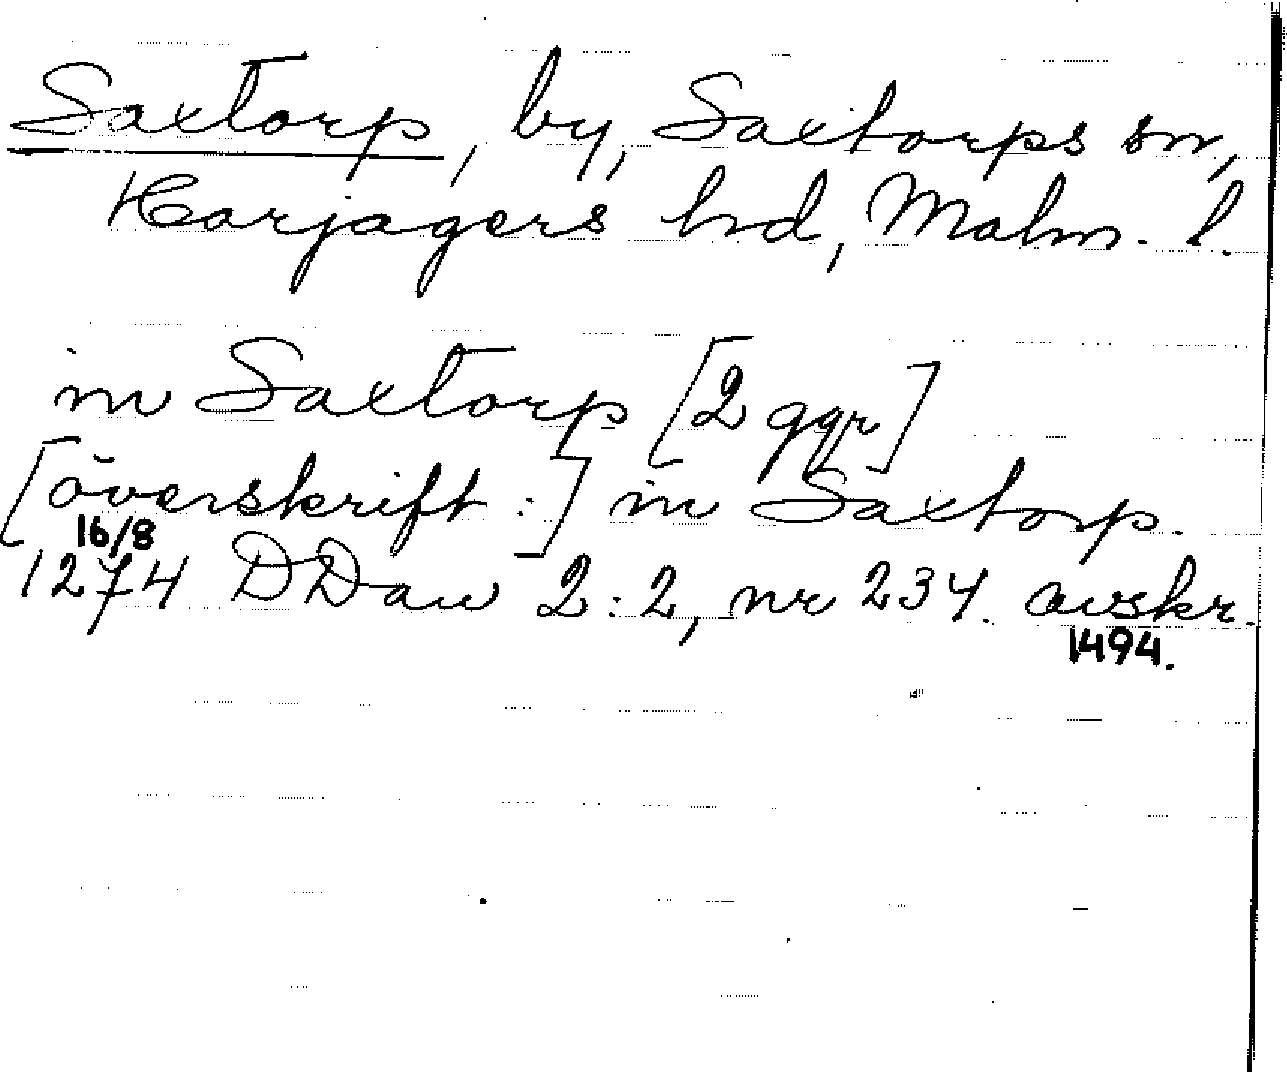 Saxtorp, by, Saxtorps sn,
Harjagers hd, Malm. l.
in Saxtorp [2 ggr]
[överskrift:] in Saxtorp.
16/8
1274 DDan 2:2, nr 234. avskr.
1494.